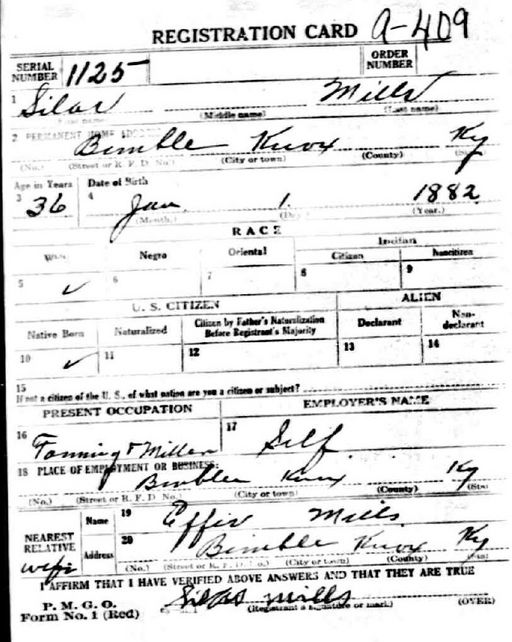 REGISTRATION CARD A-409
SERIAL NUMBER 1125 ORDER NUMBER
1 Silas Mills
(Middle name) (Last name)
2 PERMANENT HOME ADDRESS
Bimble Knox Ky
(No.) (Street or R. F. D. No.) (City or town) (County)
Age in Years Date of Birth
3 36 4 Jan 1 1882
(Month.) (Day.) (Year.)
RACE
Negro Oriental Indian
Citizen Noncitizen
5 ✓ 6 7 8 9
U. S. CITIZEN ALIEN
Native Born Naturalized Citizen by Father's Naturalization Before Registrant's Majority Declarant Non-declarant
10 ✓ 11 12 13 14
15
If not a citizen of the U. S., of what nation are you a citizen or subject?
PRESENT OCCUPATION EMPLOYER'S NAME
16 Farming & Miller 17 Self
18 PLACE OF EMPLOYMENT OR BUSINESS:
Bimble Knox Ky
(No.) (Street or R. F. D. No.) (City or town) (County)
NEAREST RELATIVE Name 19 Effie Mills
wife Address 20 Bimble Knox Ky
(No.) (Street or R. F. D. No.) (City or town) (County)
I AFFIRM THAT I HAVE VERIFIED ABOVE ANSWERS AND THAT THEY ARE TRUE
P. M. G. O.
Form No. 1 (Red) Silas Mills
(Registrant's signature or mark) (OVER)